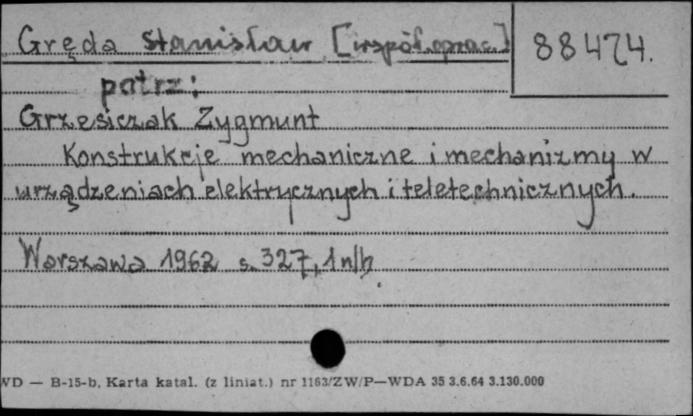 Gręda Stanisław [współ.oprac.]
88474.
patrz:
Grzesiczak Zygmunt
Konstrukcje mechaniczne i mechanizmy w
urządzeniach elektrycznych i teletechnicznych.
Warszawa 1962 s. 327, 1 nlb
VD — B-15-b, Karta katal. (z liniat.) nr 1163/ZW/P—WDA 35 3.6.64 3.130.000